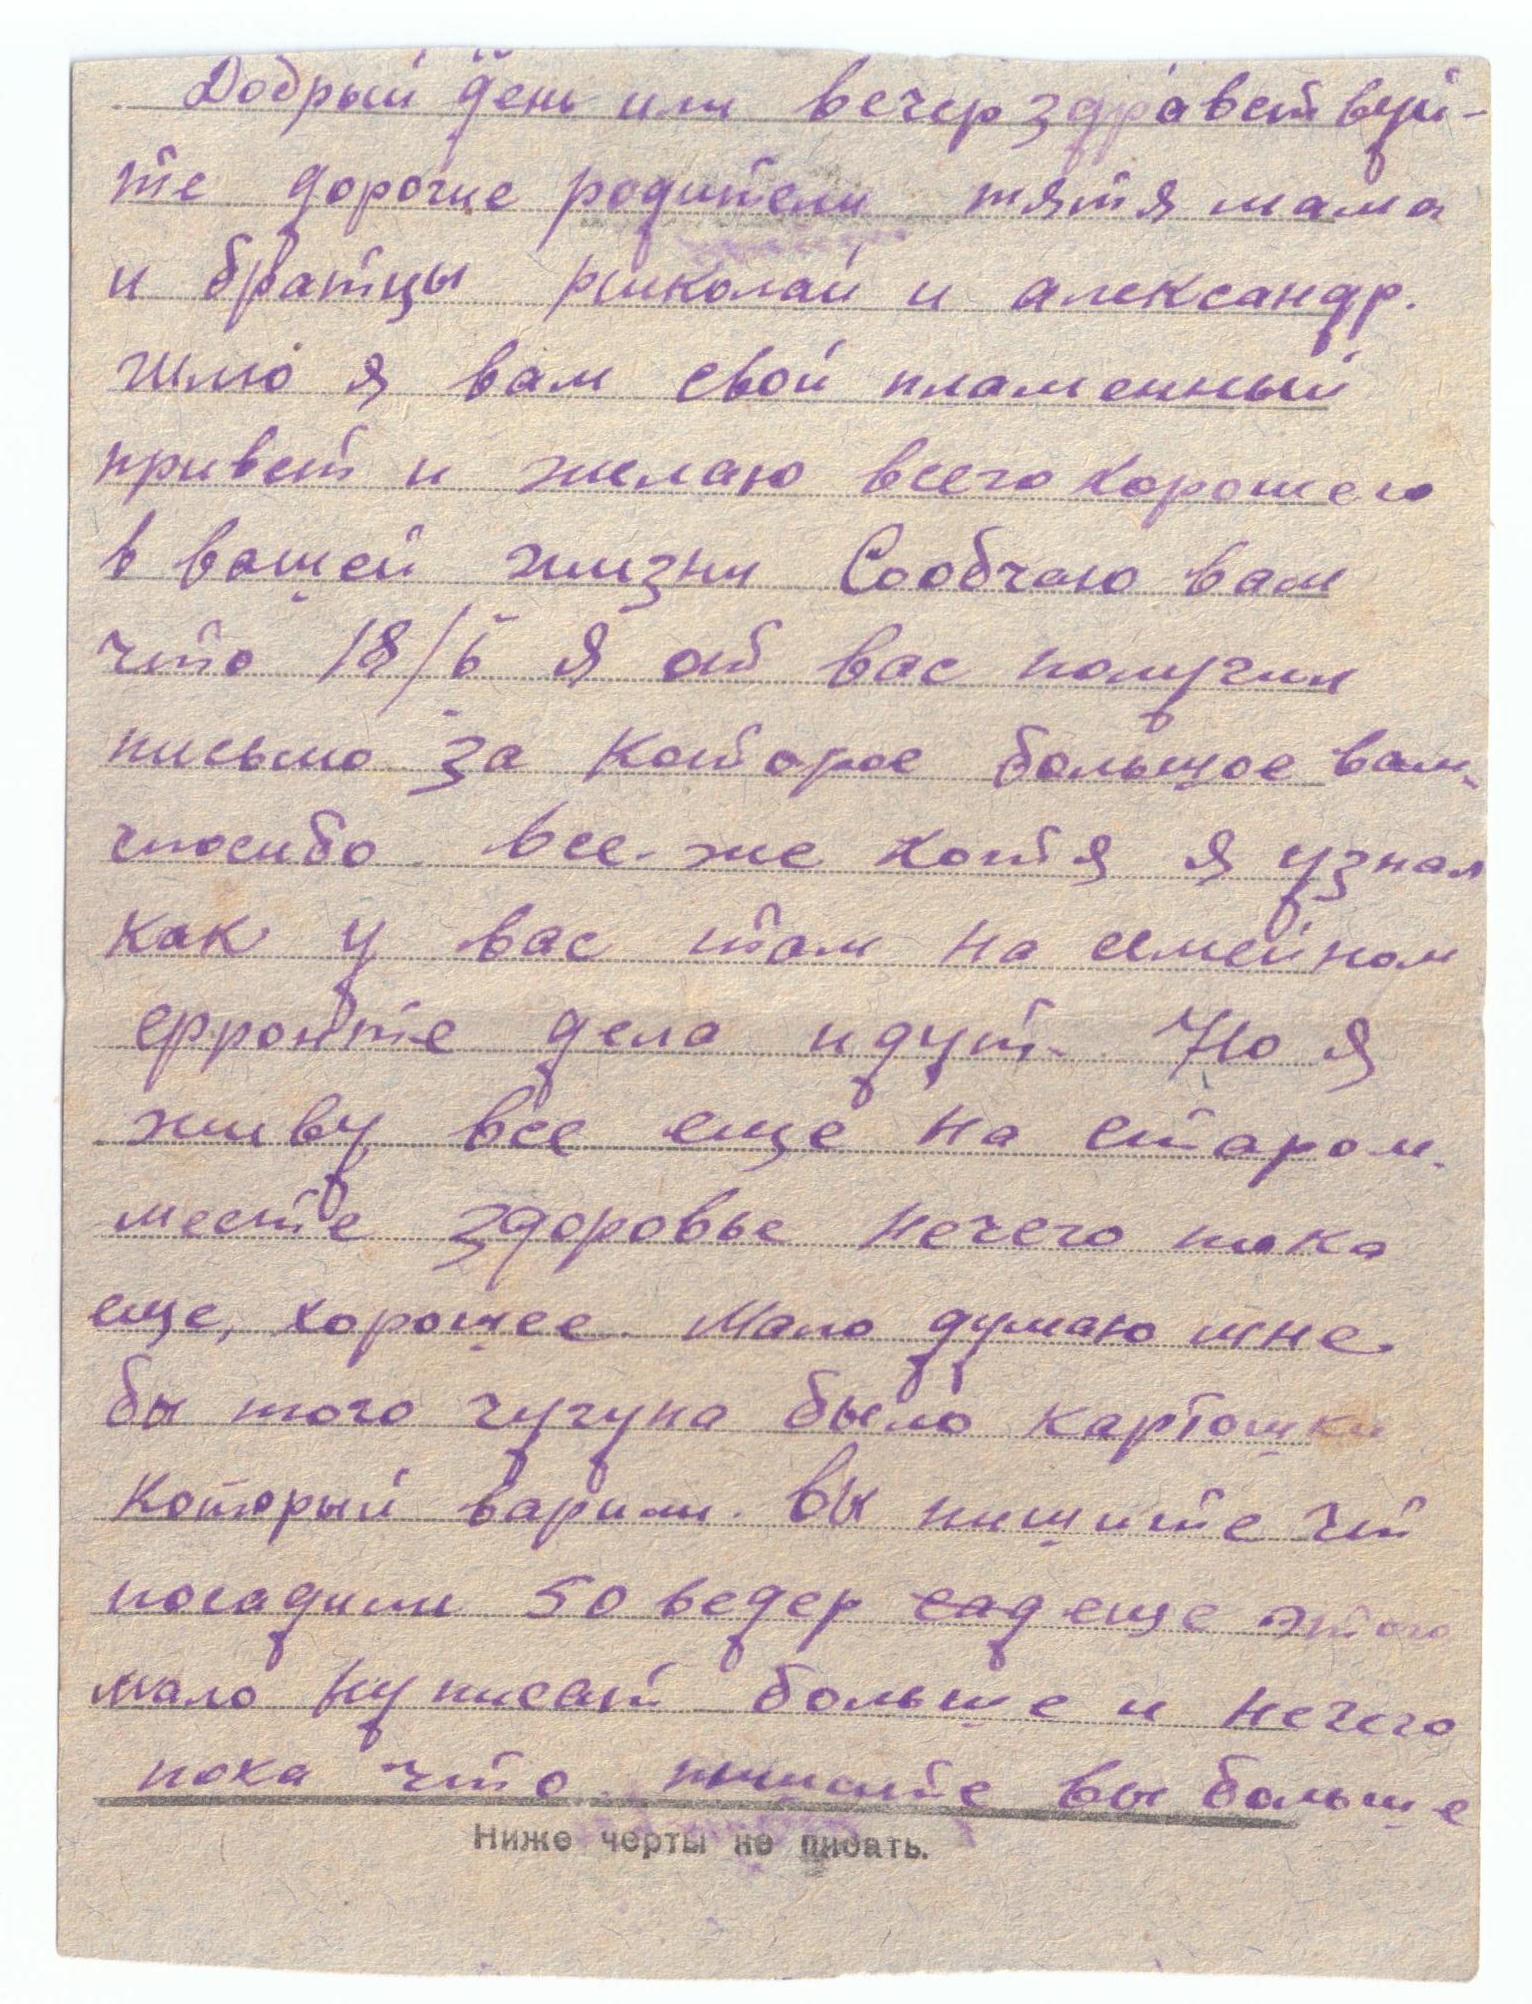 Добрый день или вечер здравствуй-
те дорогие родители тятя мама
и братцы николай и александр.
Шлю я вам свой пламенный
привет и желаю всего хорошего
в вашей жизни Сообчаю вам
что 18/6 я от вас получил
письмо за которое большое вам
спасибо. Все-же хотя я узнал
как у вас там на семейном
фронте дела идут. Но я
живу все еще на старом
месте здоровье нечего пока
еще, хорошее. Мало думаю мне
бы того чугуна было картошки
который варили. Вы пишите чт
посадили 50 ведер сад еще этого
мало Ну писат больше и нечего
пока что. пишите вы больше
Ниже черты не писать.